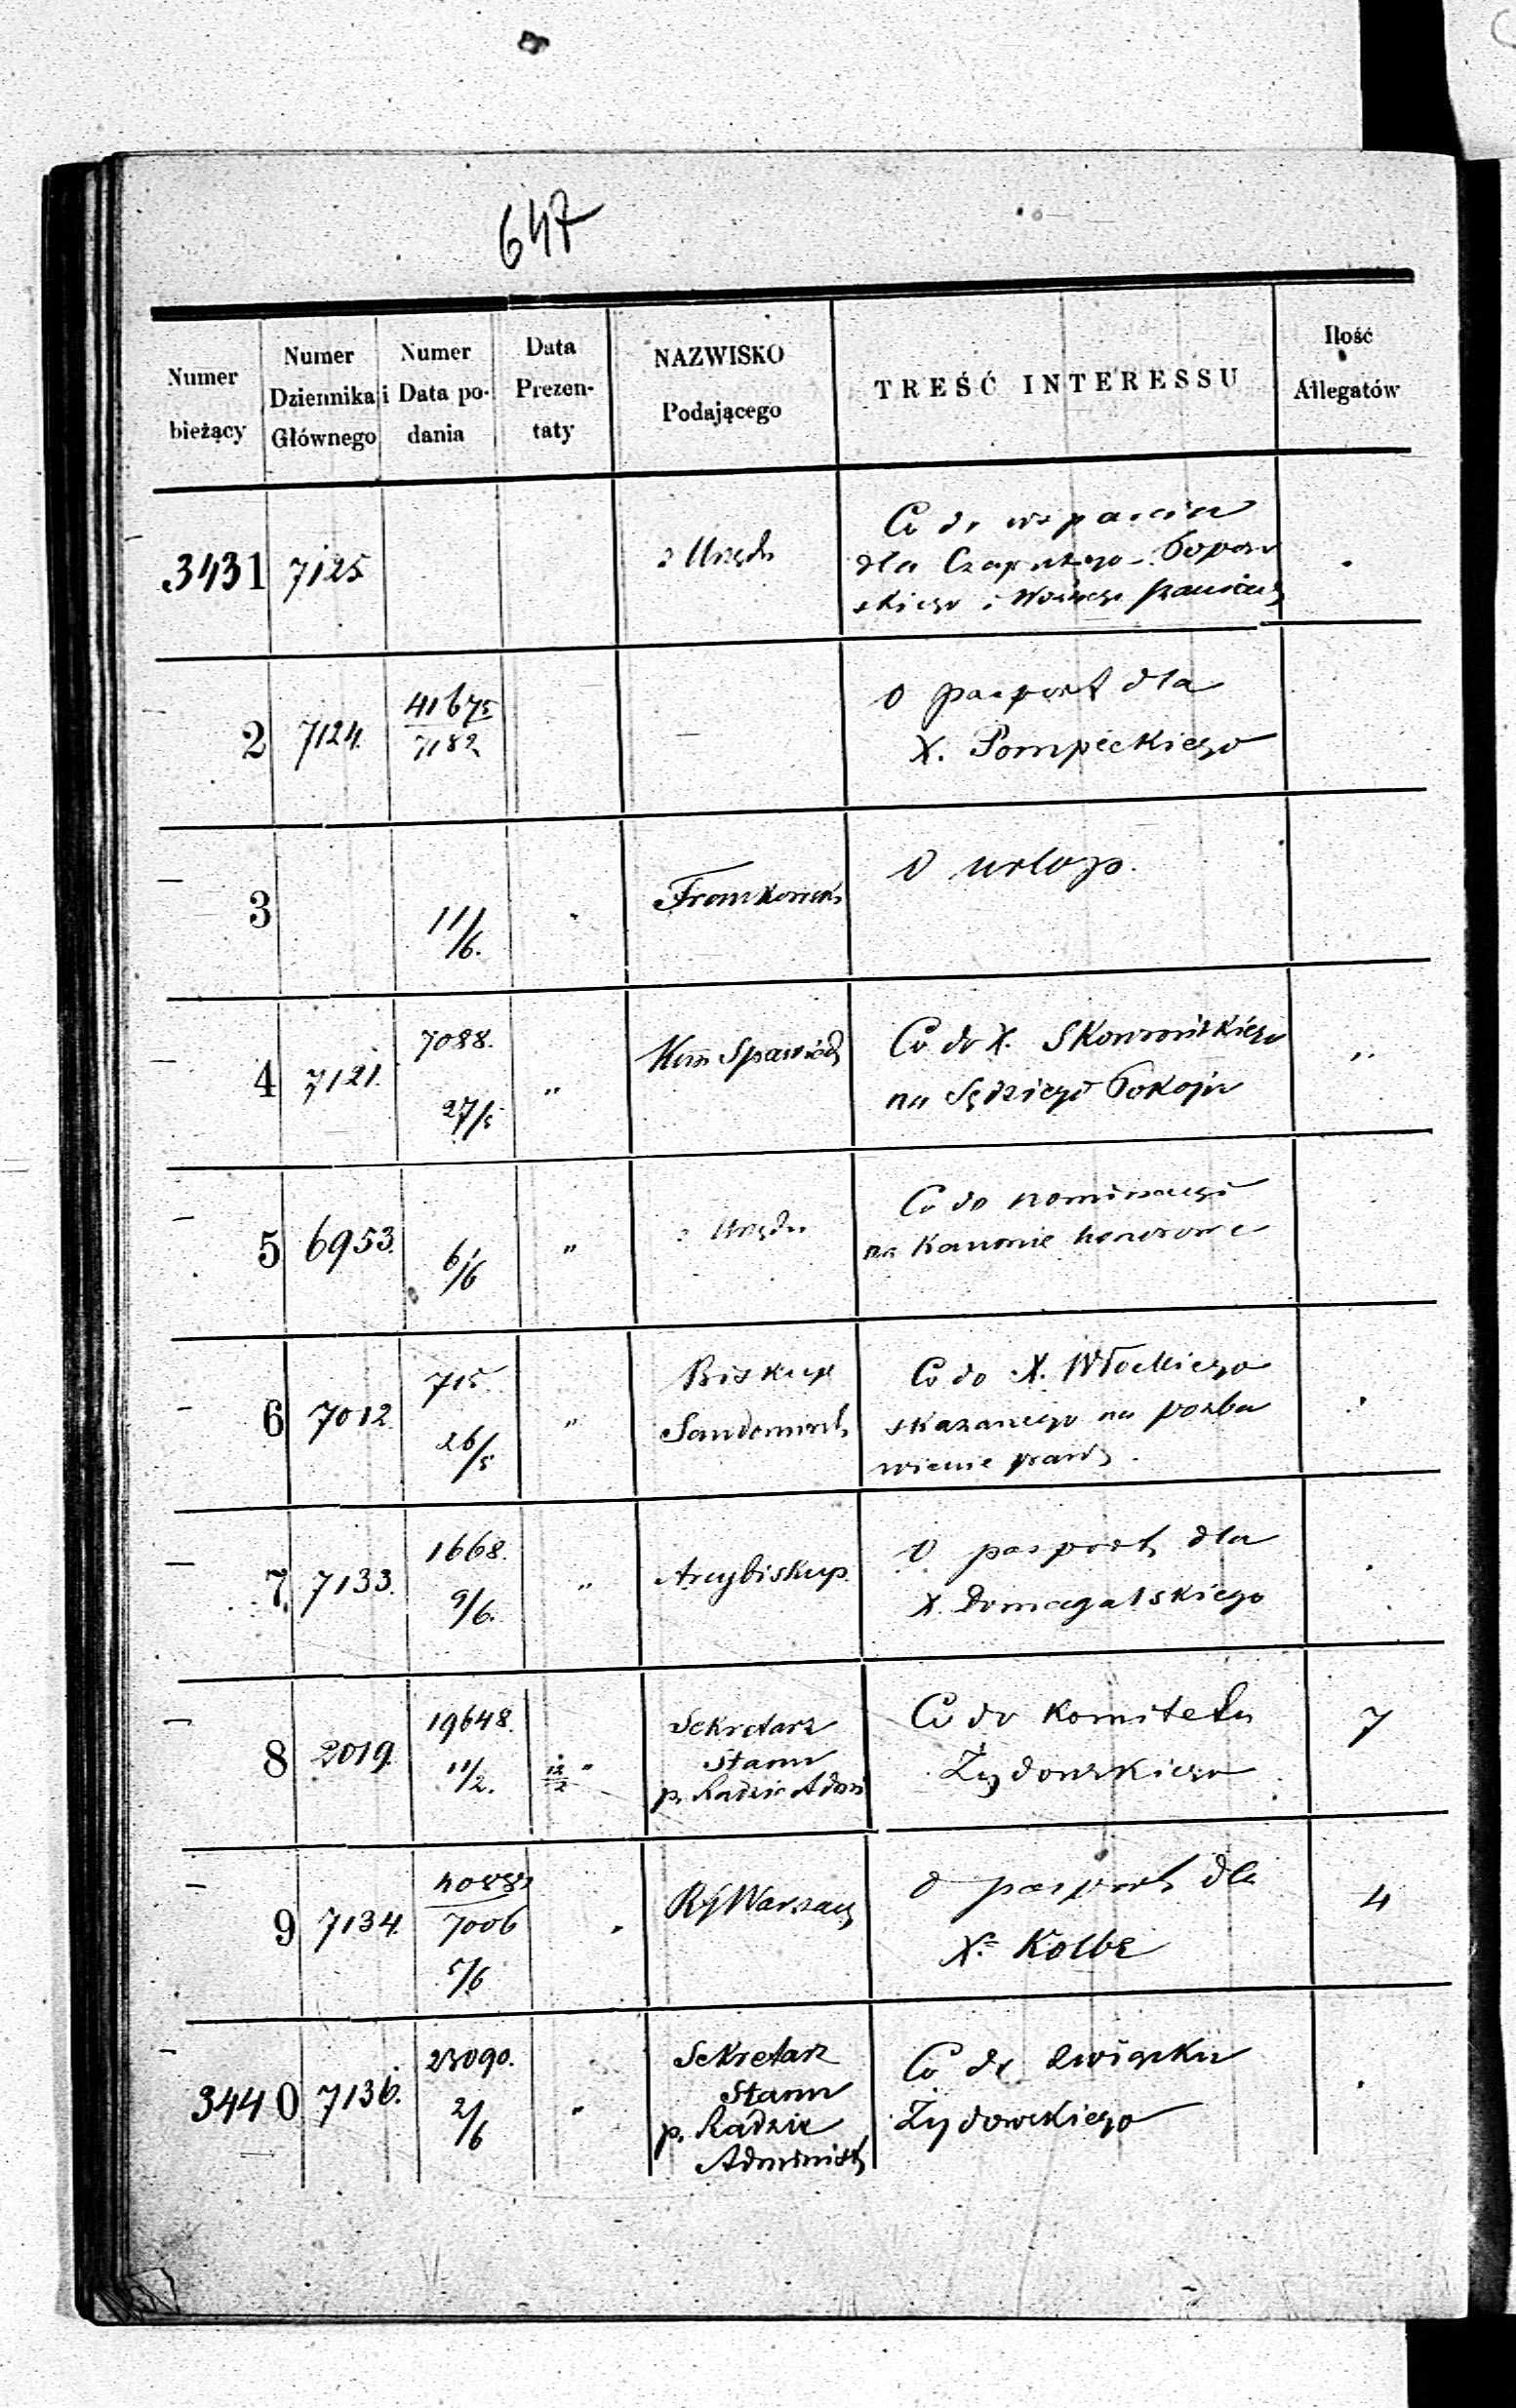 647
Numer bieżący
Numer Dziennika Głównego
Numer i Data podania
Data Prezentaty
NAZWISKO Podającego
TREŚĆ INTERESSU
Ilość Allegatów
3431 7125 z Urzędu
Co do wsparcia
dla
skiego i
2 7124. 41675
7182
O pasport dla
X. Pompeckiego
3 11/6. O urlop.
4 7121. 7088.
27/5 " Co do X. Skowrońskiego "
na Sędziego Pokoju
5 6953. 6/6 " z Urzędu
Co do nominacyi
na Kanonie honorowe
6 7012 715.
26/5 " Biskup
Sandomirsk
Co do X.
skazanego na pozba
wienie praw
7 7133. 1668.
9/6. " Arcybiskup.
O pasport dla
X. Domagalskiego
8 2019. 19648.
11/2. 12/2 " Sekretarz
Stanu
p. Radzie Admi
Co do Komitetu 7
Żydowskiego
9 7134.
7006
5/6
Warszaw
O pasport dla 4
X. Kolbe
3440 7136. 23090.
2/6 " Sekretarz
Stanu
p. Radzie
Administ
Co do związku
Żydowskiego